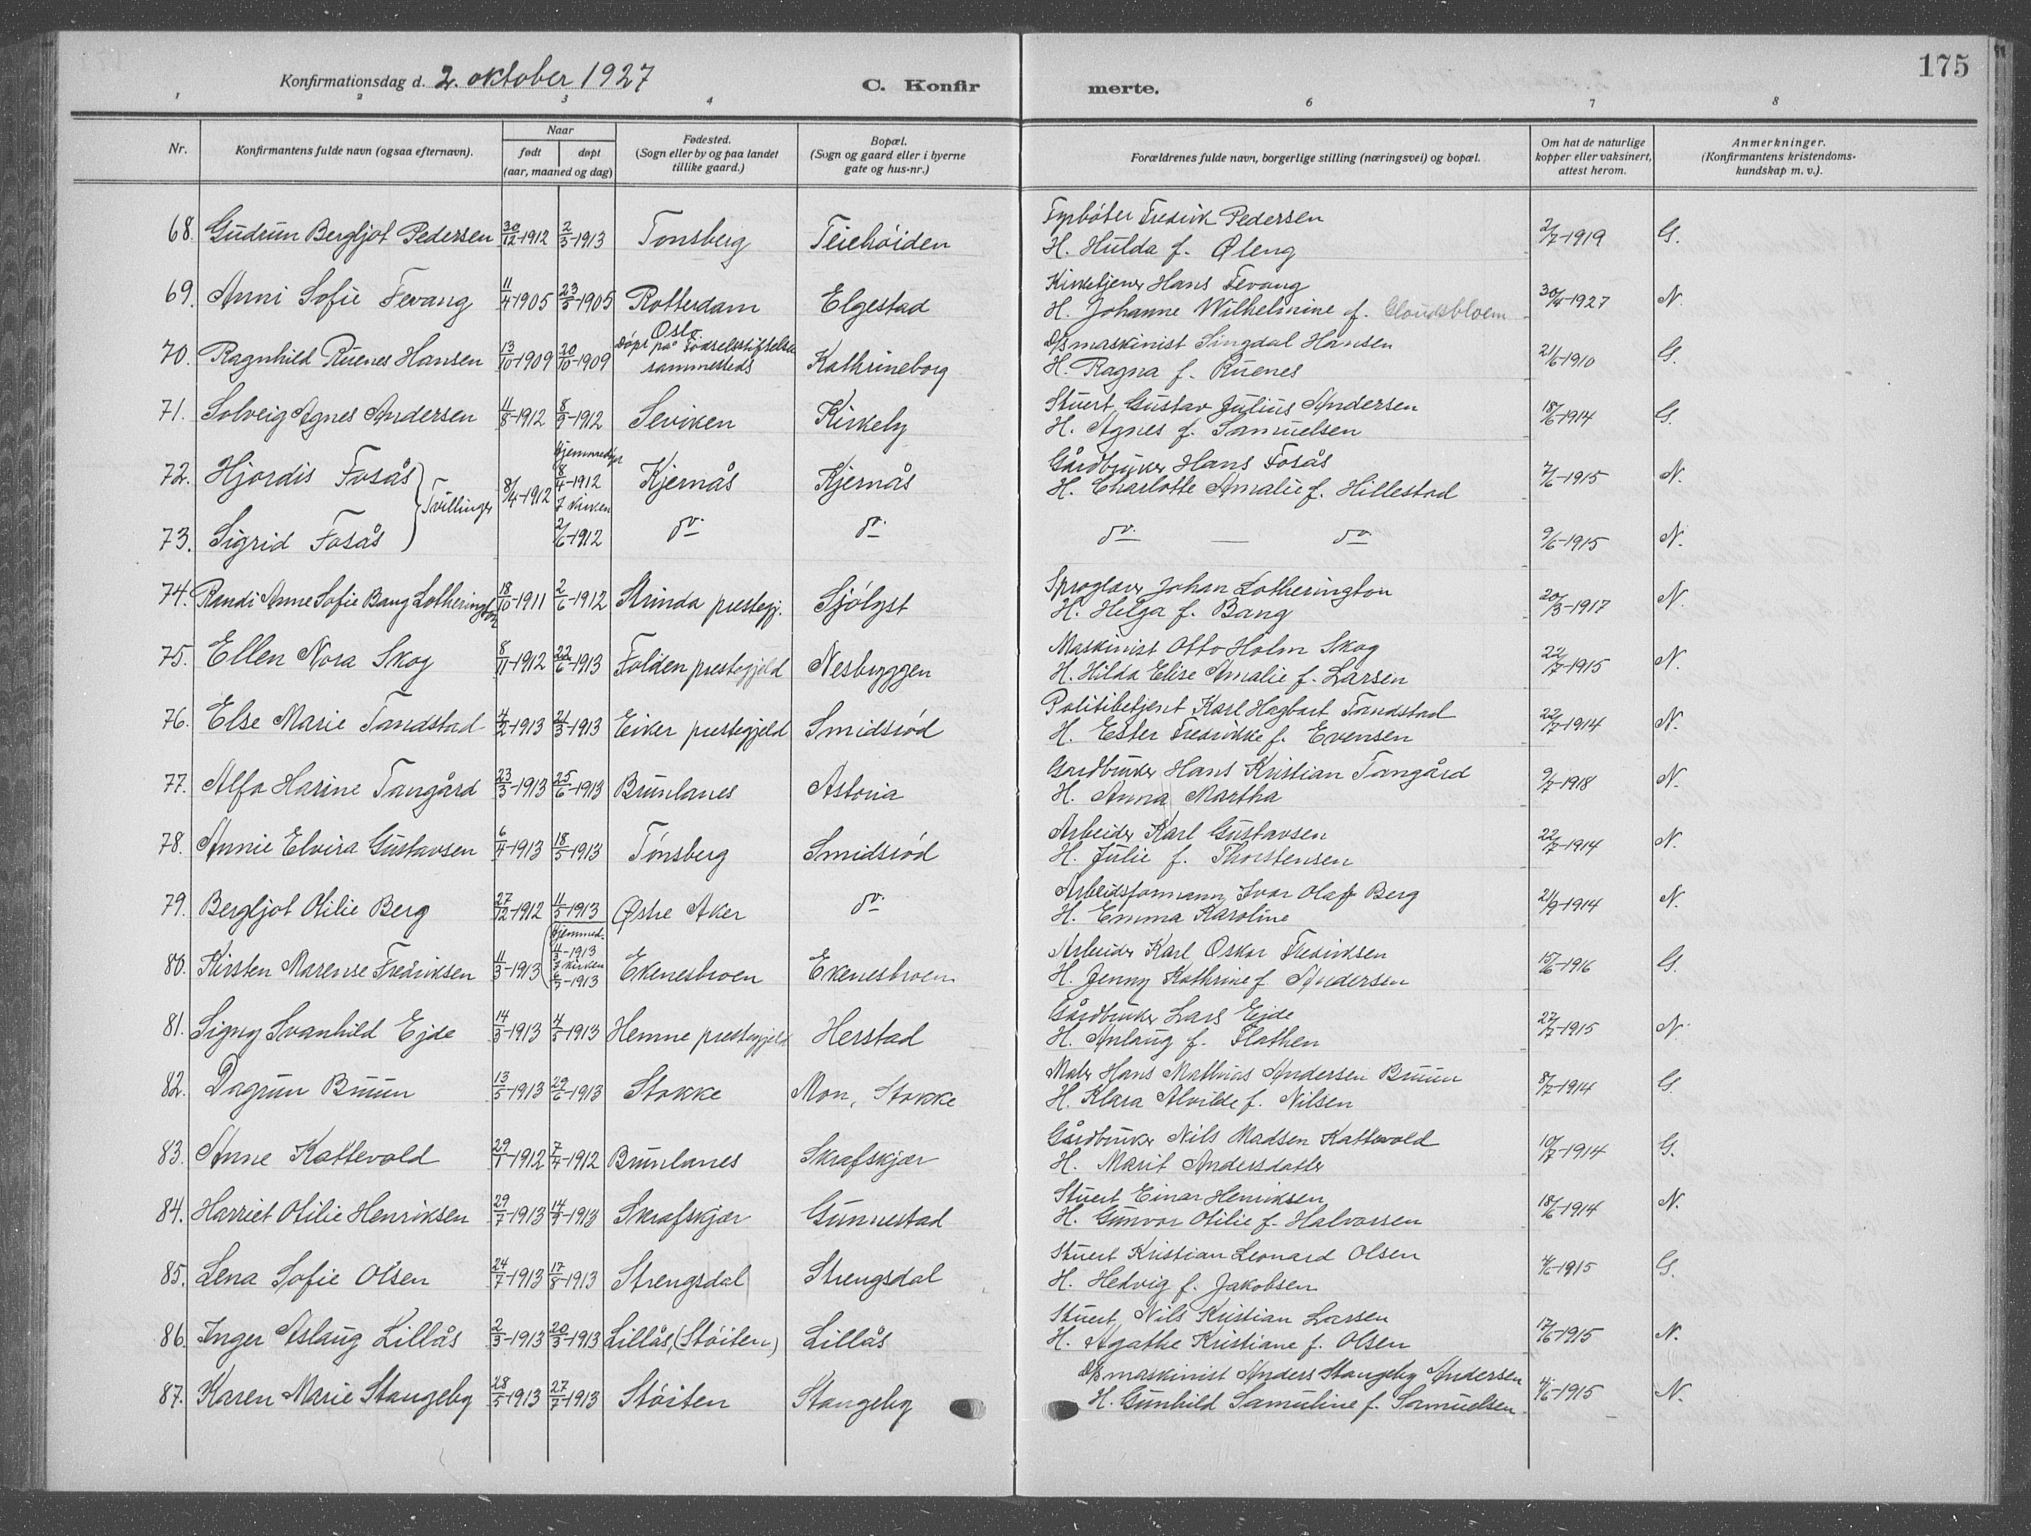 175
Konfirmationsdag d. 2. oktober 1927
C. Konfir
merte.
1 2 3 4 6 7 8
Nr.
Konfirmantens fulde navn (ogsaa efternavn).
Naar
født døpt
(aar, maaned og dag)
Fødested.
(Sogn eller by og paa landet
tillike gaard.)
Bopæl.
(Sogn og gaard eller i byerne
gate og hus-nr.)
Forældrenes fulde navn, borgerlige stilling (næringsvei) og bopæl.
Om hat de naturlige
kopper eller vaksinert,
attest herom.
Anmerkninger.
(Konfirmantens kristendoms-
kundskap m. v.).
68. Gudrun Bergljot Pedersen 30/12-1912 2/3-1913 Tønsberg Teiehöiden
Fyrbøter Fredrik Pedersen
H. Hulda f. Øleng 2/7-1919 G.
69. Anni Sofie Fevang 11/4-1905 23/5-1905 Rotterdam Elgestad
Kirketjener Hans Fevang
H. Johanne Wilhelmine f. 30/5-1927 N.
70. Ragnhild Ruenes Hansen 13/10-1909 20/10-1909 Oslo
Døpt på Fødselsstiftelsen
sammesteds Kathrineborg
D/S maskinist Singdal Hansen
H. Ragna f. Ruenes 21/6-1910 G.
71. Solveig Agnes Andersen 11/8-1912 8/9-1912 Seviken Kirkeby
Stuert Gustav Julius Andersen
H. Agnes f. Samuelsen 18/6-1914 G.
72. Hjordis Fosås } Tvillinger 8/4-1912 Hjemmedøpt
8/4-1912
I kirken Kjernås Kjernås
Gårdbruker Hans Fosås
H. Charlotte Amalie f. Hillestad 7/6-1915 N.
73. Sigrid Fosås 2/6-1912 do. do.
do. — do. 9/6-1915 N.
74. Randi Anne Sofie Bang Lotherington 18/10-1911 2/6-1912 Strinda prestegj. Sjölyst
Sproglærer Johan Lotherington
H. Helga f. Bang 20/3-1917 N.
75. Ellen Nora Skog 8/11-1912 22/6-1913 Folden prestegjeld Nesbryggen
Maskinist Otto Holm Skog
H. Hilda Elise Amalie f. Larsen 22/7-1915 N.
76. Else Marie Tandstad 4/2-1913 21/3-1913 Eiker prestegjeld Smidsröd
Politibetjent Karl Hagbart Tandstad
H. Ester Fredrikke f. Evensen 22/7-1914 N.
77. Alfa Harine Tangård 23/3-1913 25/6-1913 Brunlanes Astoria
Gardbruker Hans Kristian Tangård
H. Anna Martha 9/7-1918 N.
78. Annie Elvira Gustavsen 6/4-1913 18/5-1913 Tönsberg Smidsröd
Arbeider Karl Gustavsen
H. Julie f. Thorstensen 22/7-1914 N.
79. Bergljot Otilie Berg 27/12-1912 11/5-1913 Østre Aker do.
Arbeidsformann Ivar Olaf Berg
H. Emma Karoline 21/9-1914 N.
80. Kirsten Marense Fredriksen 11/3-1913 Hjemmed.
11/3-1913
I kirken
4/5-1913 Ekenesbroen Ekenesbroen
Arbeider Karl Oskar Fredriksen
H. Jenny Kathrine f. Andersen 15/6-1916 G.
81. Signy Svanhild Ejde 14/3-1913 4/5-1913 Hemne prestegjeld Herstad
Gårdbruker Lars Ejde
H. Anlaug f. Flathen 22/7-1915 N.
82. Dagrun Bruun 13/5-1913 29/6-1913 Stokke Mon, Stokke
Maler Hans Mathias Andersen Bruun
H. Klara Alvilde f. Nilsen 8/7-1914 G.
83. Anne Kattevold 29/1-1912 7/4-1912 Brunlanes Skrafskjær
Gårdbruker Nils Madsen Kattevold
H. Marit Andersdatter 10/7-1914 G.
84. Harriet Otilie Henriksen 29/7-1913 14/9-1913 Skrafskjær Gunnestad
Stuert Einar Henriksen
H. Gunvor Otilie f. Halvorsen 18/6-1914 N.
85. Lena Sofie Olsen 24/7-1913 17/8-1913 Strengsdal Strengsdal
Stuert Kristian Leonard Olsen
H. Hedvig f. Jakobsen 4/6-1915 G.
86. Inger Aslaug Lillås 2/3-1913 20/3-1913 Lillås, (Stöiten) Lillås
Stuert Nils Kristian Larsen
H. Agathe Kristiane f. Olsen 17/6-1915 N.
87. Karen Marie Stangeby 28/5-1913 27/7-1913 Stöiten Stangeby
D/S maskinist Anders Stangeby Andersen
H. Gunhild Samuline f. Samuelsen 4/6-1915 N.